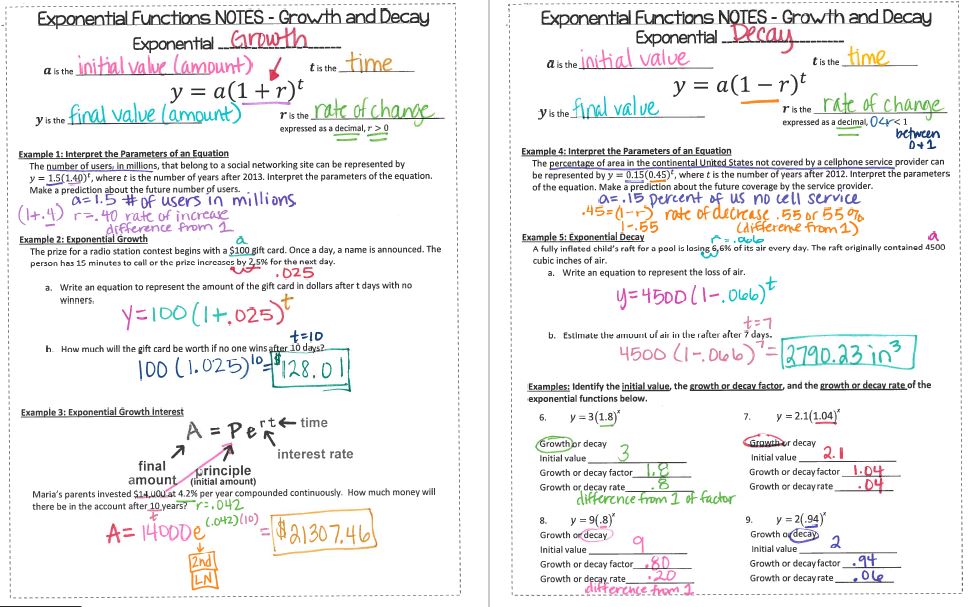 Exponential Functions NOTES - Growth and Decay
Exponential Growth
a is the initial value (amount) t is the time
y = a(1 + r)^t
y is the final value (amount) r is the rate of change
expressed as a decimal, r > 0
Example 1: Interpret the Parameters of an Equation
The number of users, in millions, that belong to a social networking site can be represented by
y = 1.5(1.40)^t, where t is the number of years after 2013. Interpret the parameters of the equation.
Make a prediction about the future number of users.
a=1.5 # of users in millions
(1+.4) r=.40 rate of increase
difference from 1
Example 2: Exponential Growth
a
The prize for a radio station contest begins with a $100 gift card. Once a day, a name is announced. The
person has 15 minutes to call or the prize increases by 2.5% for the next day.
.025
a. Write an equation to represent the amount of the gift card in dollars after t days with no
winners.
y=100(1+.025)^t
t=10
b. How much will the gift card be worth if no one wins after 10 days?
100(1.025)^10= $128.01
Example 3: Exponential Growth Interest
A = Pe^rt ← time
interest rate
final amount
principle (initial amount)
Maria's parents invested $14,000 at 4.2% per year compounded continuously. How much money will
there be in the account after 10 years? r=.042
t
A= 14000e^(.042)(10) = $21307.46
2nd
LN
Exponential Functions NOTES - Growth and Decay
Exponential Decay
a is the initial value t is the time
y = a(1 − r)^t
y is the final value r is the rate of change
expressed as a decimal, 0<r< 1
between
0+1
Example 4: Interpret the Parameters of an Equation
The percentage of area in the continental United States not covered by a cellphone service provider can
be represented by y = 0.15(0.45)^t, where t is the number of years after 2012. Interpret the parameters
of the equation. Make a prediction about the future coverage by the service provider.
a=.15 percent of us no cell service
.45=(1-r) rate of decrease .55 or 55%
1-.55 (difference from 1)
Example 5: Exponential Decay
r=.066 a
A fully inflated child's raft for a pool is losing 6.6% of its air every day. The raft originally contained 4500
cubic inches of air.
a. Write an equation to represent the loss of air.
y=4500(1-.066)^t
t=7
b. Estimate the amount of air in the rafter after 7 days.
4500(1-.066)^7= 2790.23 in^3
Examples: Identify the initial value, the growth or decay factor, and the growth or decay rate of the
exponential functions below.
6. y = 3(1.8)^x
Growth or decay
Initial value 3
Growth or decay factor 1.8
Growth or decay rate .8
difference from 1 of factor
7. y = 2.1(1.04)^x
Growth or decay
Initial value 2.1
Growth or decay factor 1.04
Growth or decay rate .04
8. y = 9(.8)^x
Growth or decay
Initial value 9
Growth or decay factor .80
Growth or decay rate .20
difference from 1
9. y = 2(.94)^x
Growth or decay
Initial value 2
Growth or decay factor .94
Growth or decay rate .06